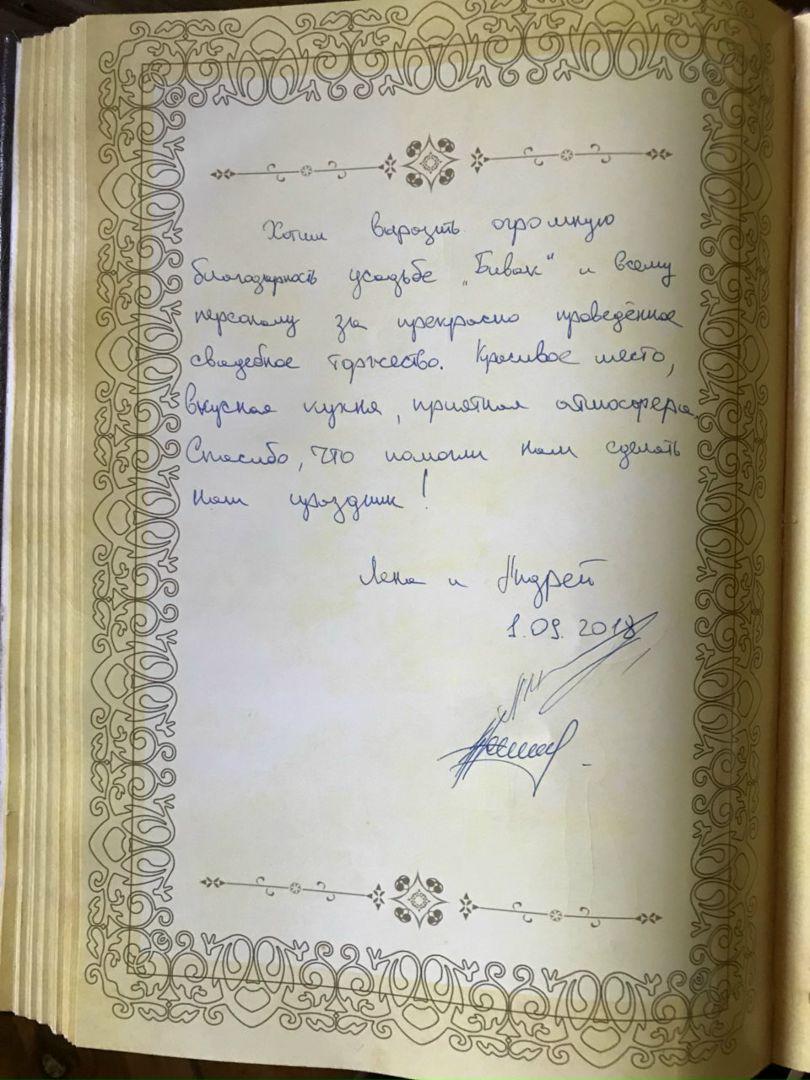 Хотим выразить огромную
благодарность усадьбе „Бивак“ и всему
персоналу за прекрасно проведённое
свадебное торжество. Красивое место,
вкусная кухня, приятная атмосфера.
Спасибо, что помогли нам сделать
наш праздник!
Лена и Андрей
1.09.2018